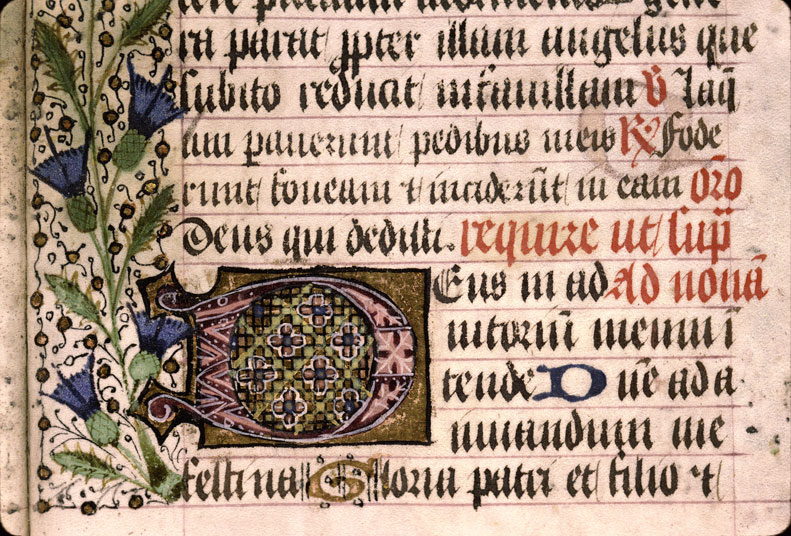 ra parat ꝓpter illam angelus que
subito reducat in famillam V Laq̄
um pauerunt pedibus meis R Fode
runt foueam ⁊ inciderūt in eam Orō
Deus qui dedisti. require ut sup̄
Eus in ad Ad nonā
iutoriū meum ī
tende Dn̄e ad a
iuuandum me
festina Gloria patri et filio ⁊